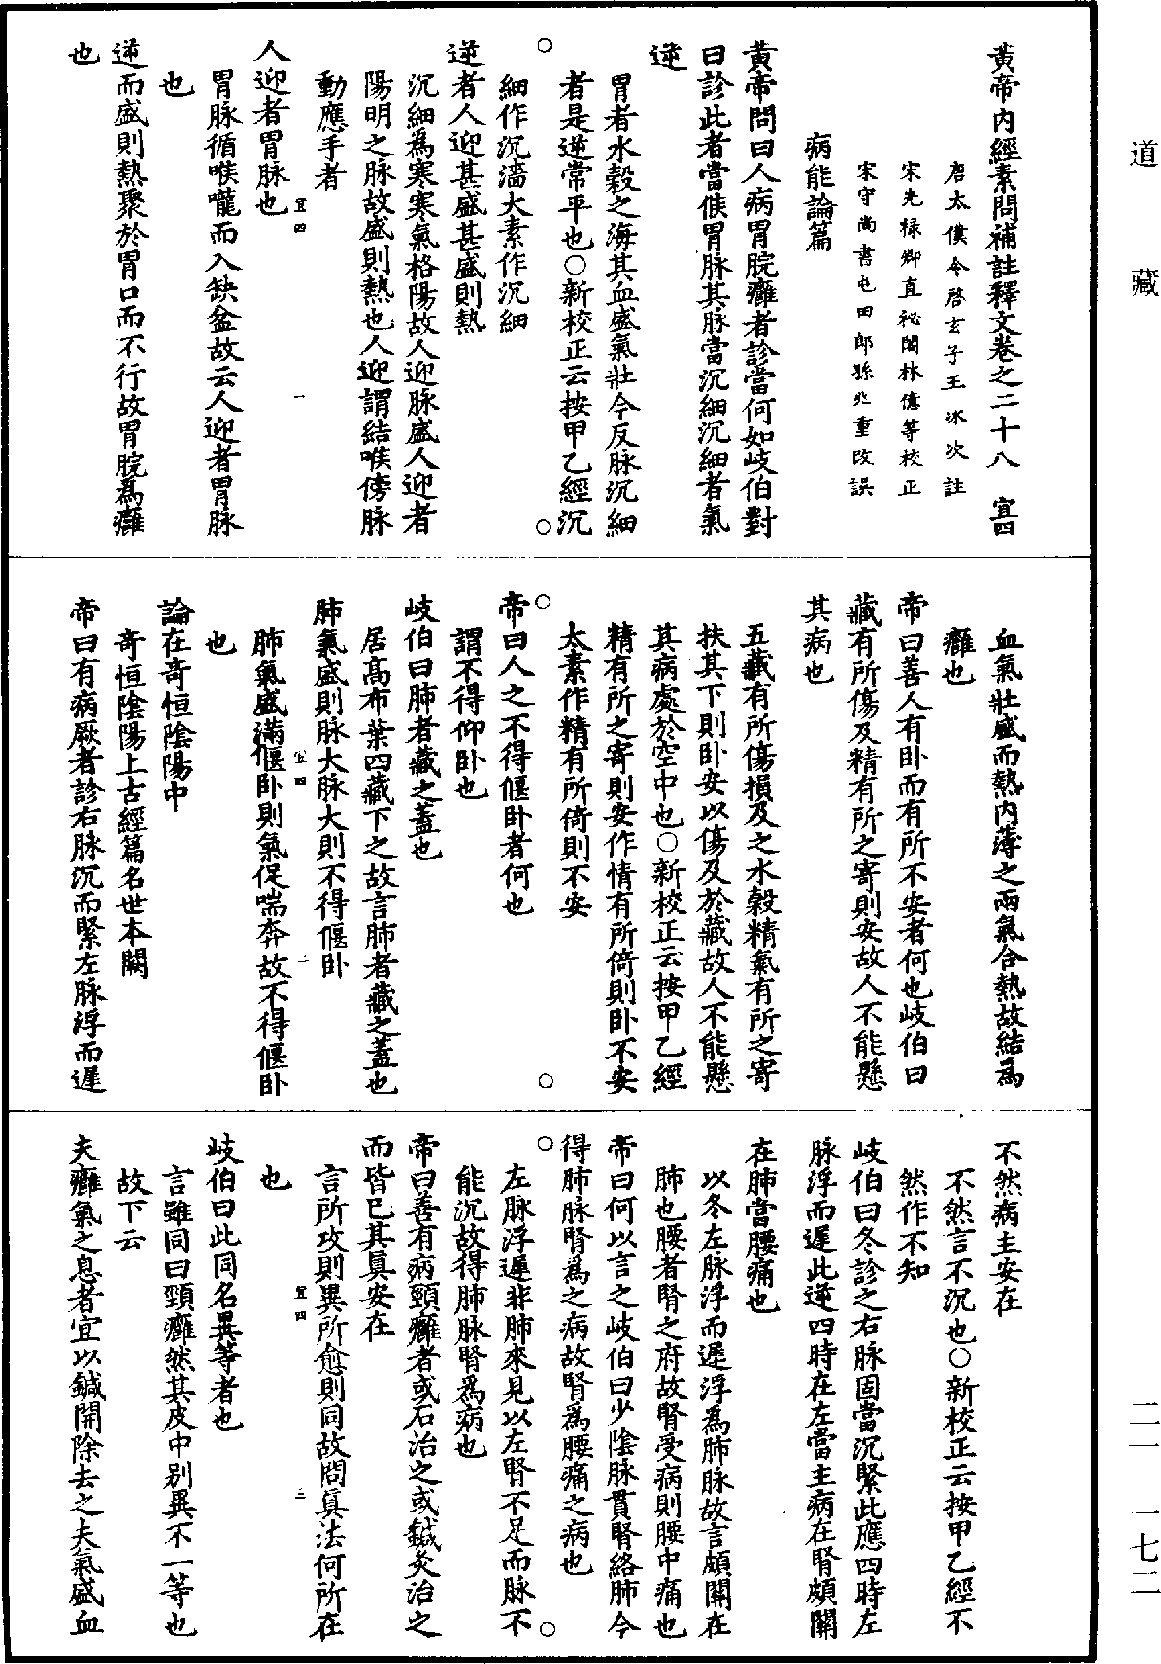 道藏
黃帝內經素問補註釋文卷之二十八 宜四
唐太僕令啓玄子王冰次註
宋光祿卿直祕閣林億等校正
宋守尚書屯田郎孫兆重改誤
病能論篇
黃帝問曰人病胃脘癰者診當何如岐伯對
曰診此者當候胃脉其脉當沉細沉細者氣
逆
胃者水穀之海其血盛氣壯今反脉沉細
者是逆常平也○新校正云按甲乙經沉
細作沉濇大素作沉細
逆者人迎甚盛甚盛則熱
沉細爲寒寒氣格陽故人迎脉盛人迎者
陽明之脉故盛則熱也人迎謂結喉傍脉
動應手者
宜四 一
人迎者胃脉也
胃脉循喉嚨而入缺盆故云人迎者胃脉
也
逆而盛則熱聚於胃口而不行故胃脘爲癰
也
血氣壯盛而熱內薄之兩氣合熱故結爲
癰也
帝曰善人有卧而有所不安者何也岐伯曰
藏有所傷及精有所之寄則安故人不能懸
其病也
五藏有所傷損及之水穀精氣有所之寄
扶其下則卧安以傷及於藏故人不能懸
其病處於空中也○新校正云按甲乙經
精有所之寄則安作情有所倚則卧不安
太素作精有所倚則不安
帝曰人之不得偃卧者何也
謂不得仰卧也
岐伯曰肺者藏之蓋也
居高布葉四藏下之故言肺者藏之蓋也
肺氣盛則脉大脉大則不得偃卧
宜四 二
肺氣盛滿偃卧則氣促喘奔故不得偃卧
也
論在奇恒陰陽中
奇恒陰陽上古經篇名世本闕
帝曰有病厥者診右脉沉而緊左脉浮而遲
不然病主安在
不然言不沉也○新校正云按甲乙經不
然作不知
岐伯曰冬診之右脉固當沉緊此應四時左
脉浮而遲此逆四時在左當主病在腎頗關
在肺當腰痛也
以冬左脉浮而遲浮爲肺脉故言頗關在
肺也腰者腎之府故腎受病則腰中痛也
帝曰何以言之岐伯曰少陰脉貫腎絡肺今
得肺脉腎爲之病故腎爲腰痛之病也
左脉浮遲非肺來見以左腎不足而脉不
能沉故得肺脉腎爲病也
帝曰善有病頸癰者或石治之或鍼灸治之
而皆已其真安在
言所攻則異所愈則同故問真法何所在
也
宜四 三
岐伯曰此同名異等者也
言雖同曰頸癰然其皮中别異不一等也
故下云
夫癰氣之息者宜以鍼開除去之夫氣盛血
二一 一七二